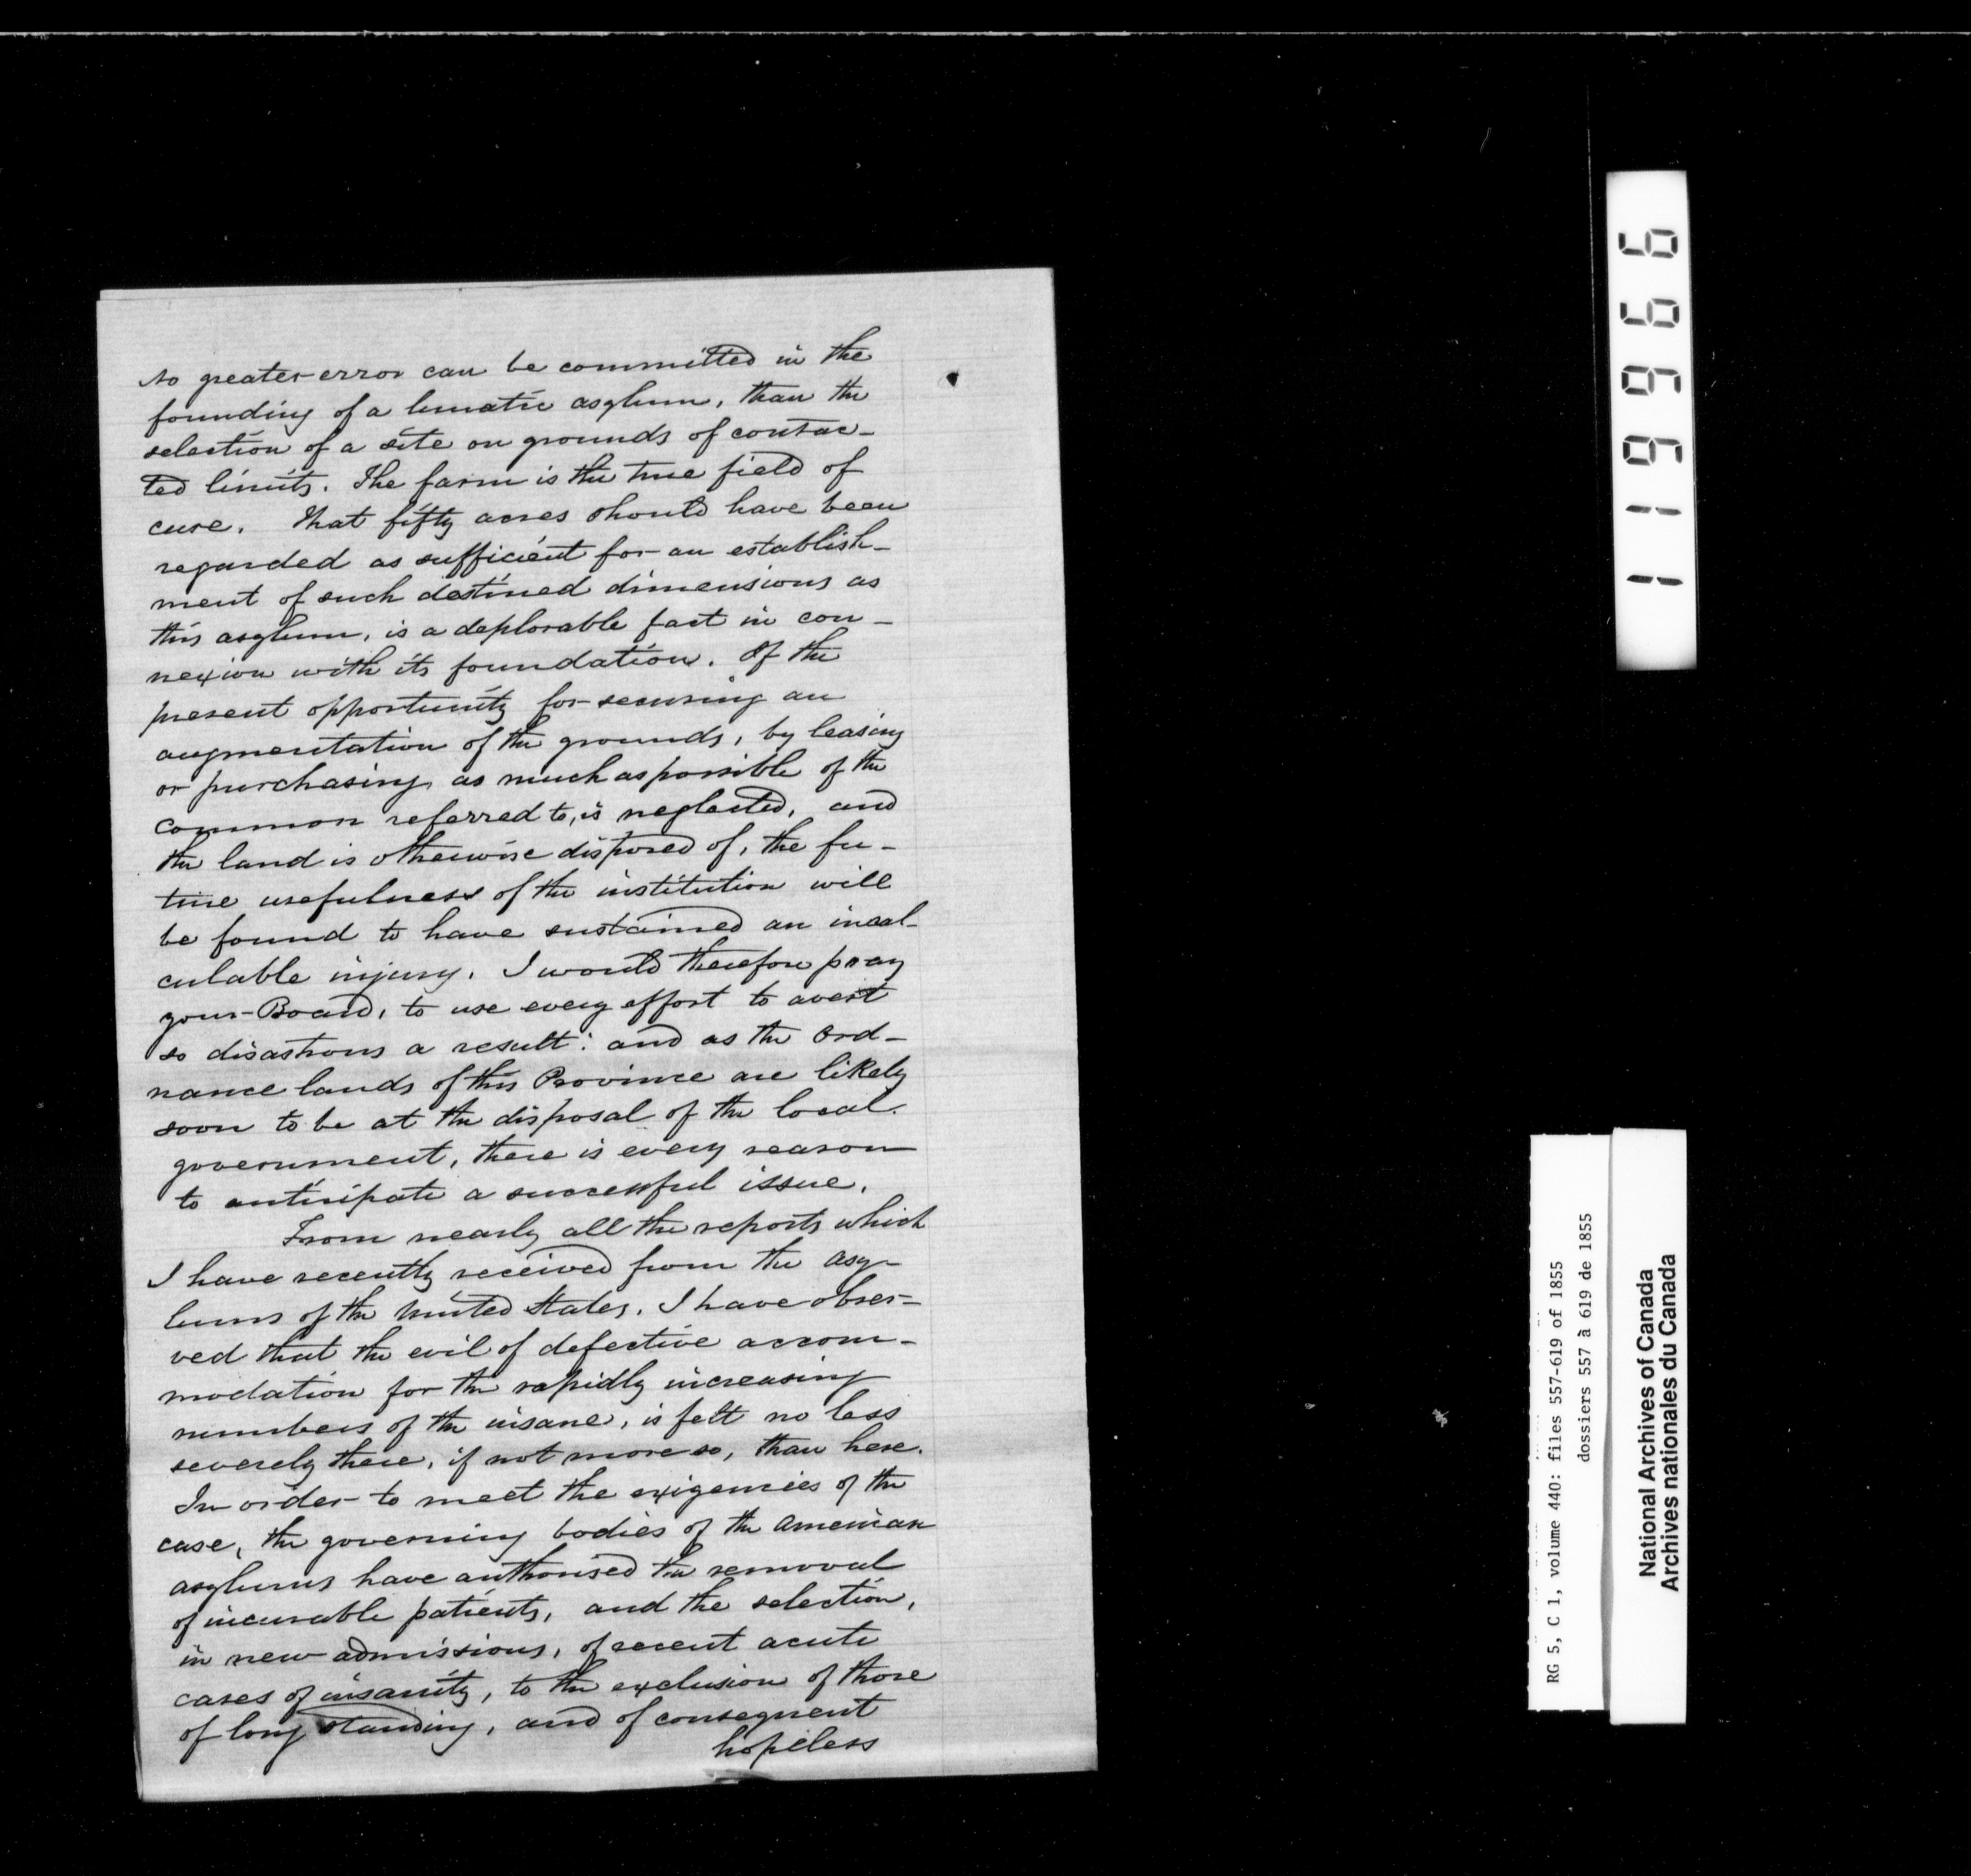 No greater error can be committed in the
founding of a lunatic asylum, than the
selection of a site on grounds of contrac-
ted limits. The farm is the true field of
cure. That fifty acres should have been
regarded as sufficient for an establish-
ment of such destined dimensions as
this asylum, is a deplorable fact in con-
nexion with its foundation. If the
present opportunity for securing an
augmentation of the grounds, by leasing
or purchasing as much as possible of the
common referred to, is neglected, and
the land is otherwise disposed of, the fu-
ture usefulness of the institution will
be found to have sustained an incal-
culable injury. I would therefore pray
your Board, to use every effort to avert
so disastrous a result: and as the Ord-
nance lands of this Province are likely
soon to be at the disposal of the local
government, there is every reason
to anticipate a successful issue.
From nearly all the reports which
I have recently received from the asy-
lums of the United States, I have obser-
ved that the evil of defective accom-
modation for the rapidly increasing
numbers of the insane, is felt no less
severely there, if not more so, than here.
In order to meet the exigencies of the
case, the governing bodies of the American
asylums have authorised the removal
of incurable patients, and the selection,
in new admissions, of recent acute
cases of insanity, to the exclusion of those
of long standing, and of consequent
hopeless
119966
RG 5, C 1, volume 440: files 557-619 of 1855
dossiers 557 à 619 de 1855
National Archives of Canada
Archives nationales du Canada